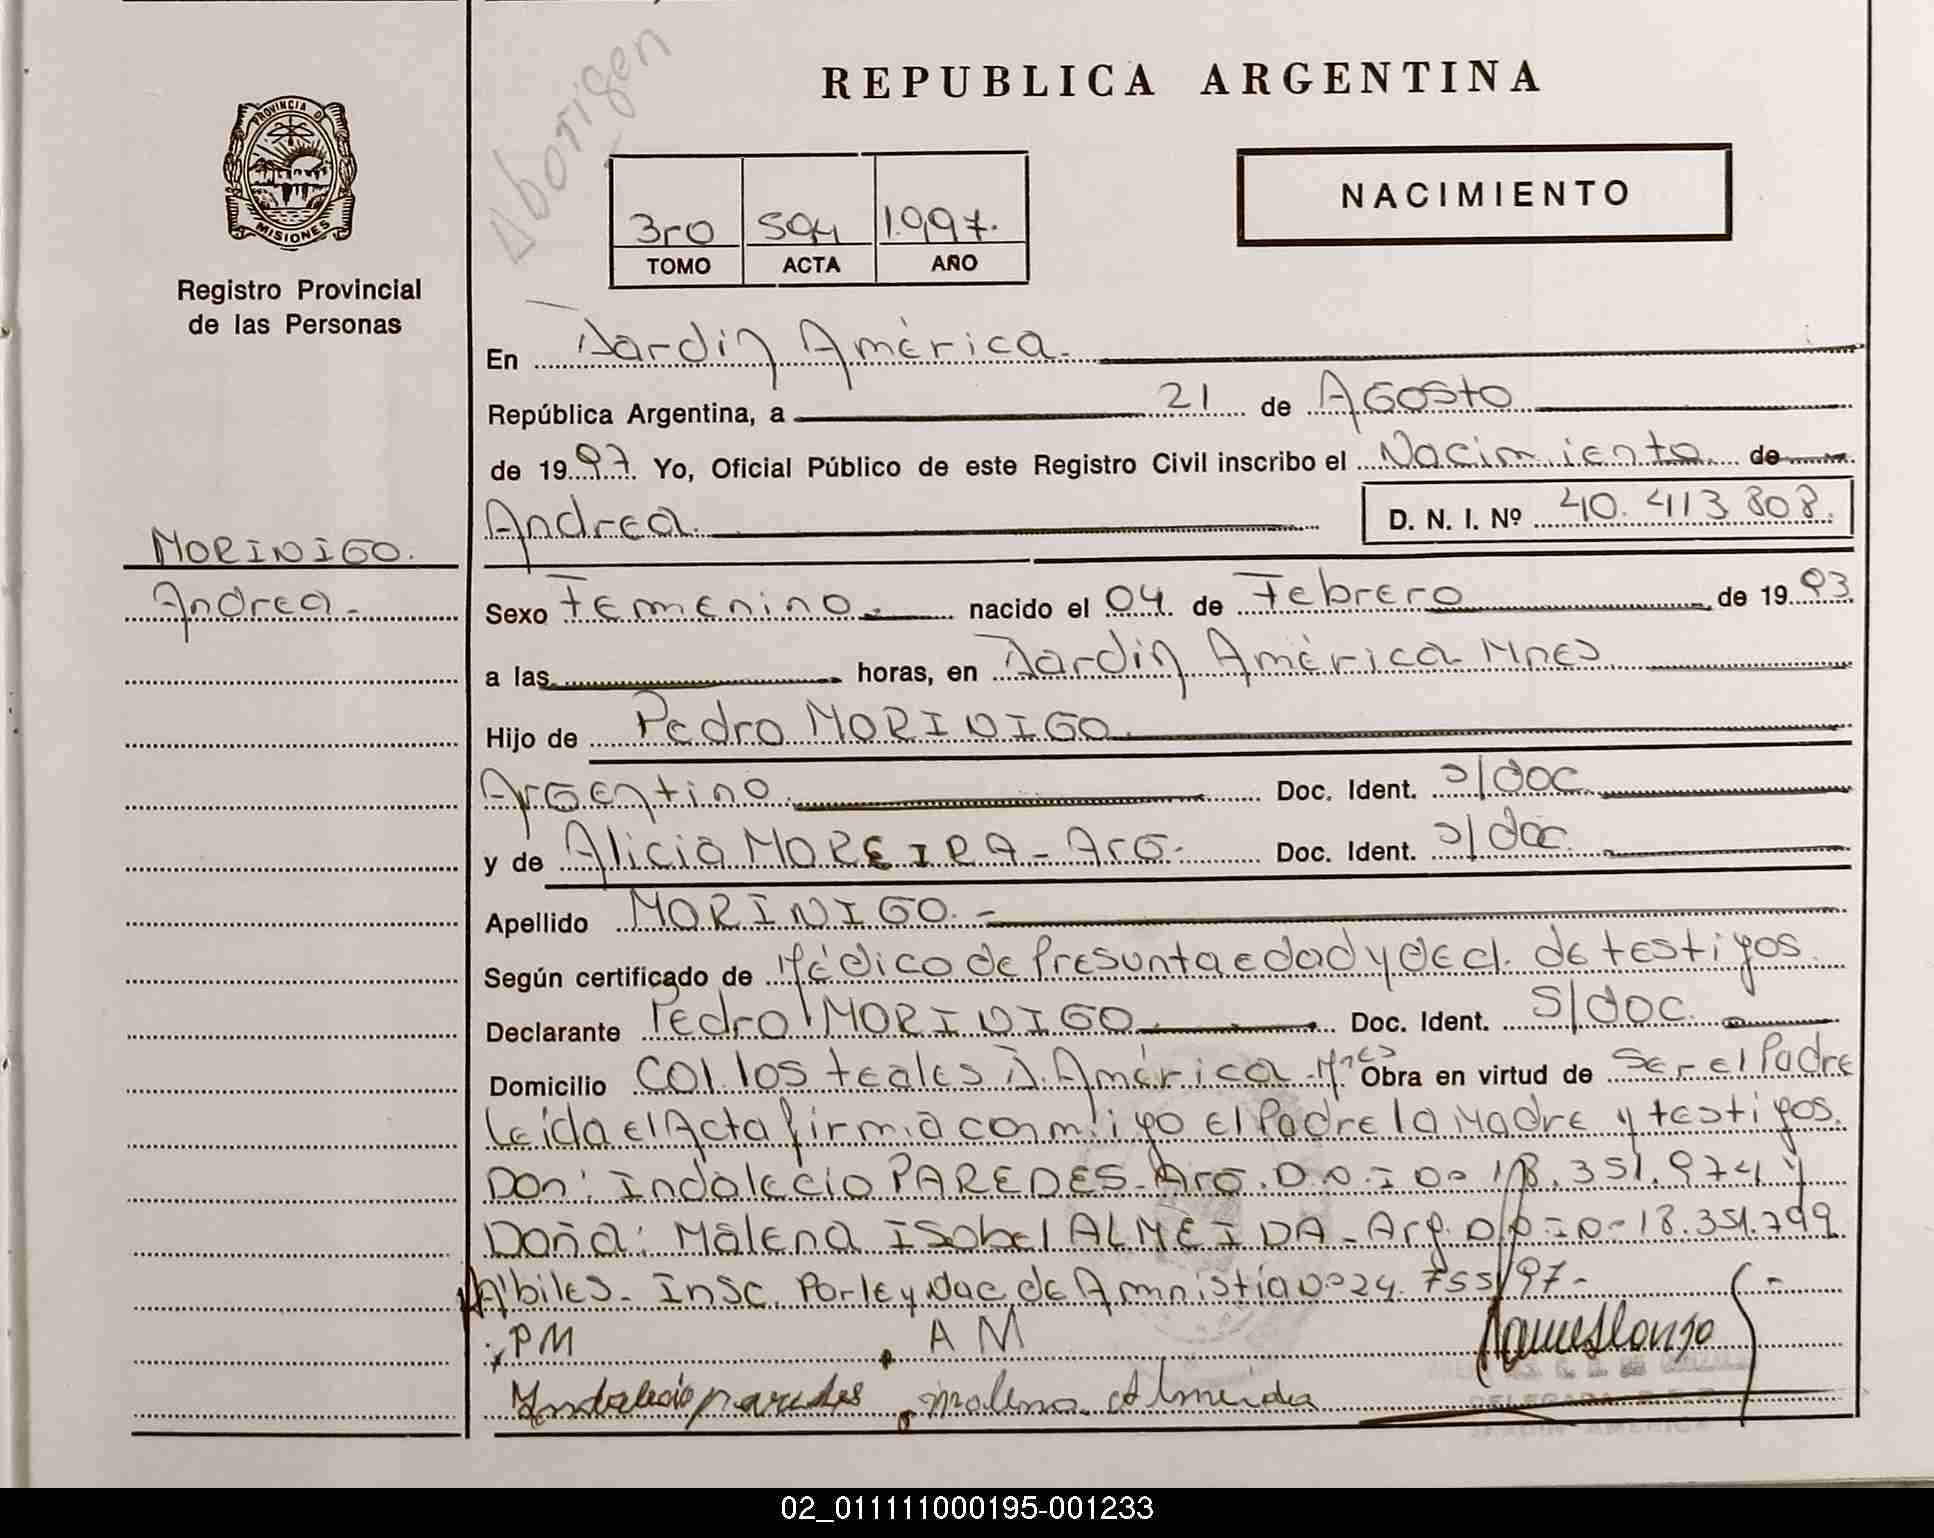 Aborigen
REPUBLICA ARGENTINA
PROVINCIA DE
MISIONES
Registro Provincial
de las Personas
3ro 594 1.997.
TOMO ACTA AÑO
NACIMIENTO
En Jardín América.
República Argentina, a 21 de AGOSTO
de 1997. Yo, Oficial Público de este Registro Civil inscribo el Nacimiento de
Andrea. D. N. I. Nº 40.413.808.
MORINIGO.
Andrea.-
Sexo Femenino.- nacido el 04 de Febrero de 1993
a las horas, en Jardín América Mnes
Hijo de Pedro MORINIGO.
Argentino Doc. Ident. s/doc.
y de Alicia MOREIRA - Arg. Doc. Ident. s/doc.
Apellido MORINIGO.-
Según certificado de Médico de Presunta edad y decl. de testigos.
Declarante Pedro MORINIGO. Doc. Ident. S/doc.
Domicilio COl. los teales J. América - Mnes Obra en virtud de Ser el Padre
Leída el Acta firma conmigo el Padre la Madre y testigos.
Don: Indalecio PAREDES - Arg. D.N.I Nº 18.351.974 y
Doña: Malena ISabel ALMEIDA - Arg. D.N.I Nº 18.351.799
Albiles. Insc. Por ley Nac de Amnistía Nº 24.755/97.-
PM AM
Indalecio paredes malena Almeida
02_011111000195-001233